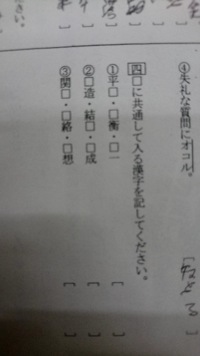 ④失礼な質問にオコル。
四□に共通して入る漢字を記してください。
①平□・□衡・□一 [ ]
②□造・結□・□成 [ ]
③関□・□絡・□想 [ ]